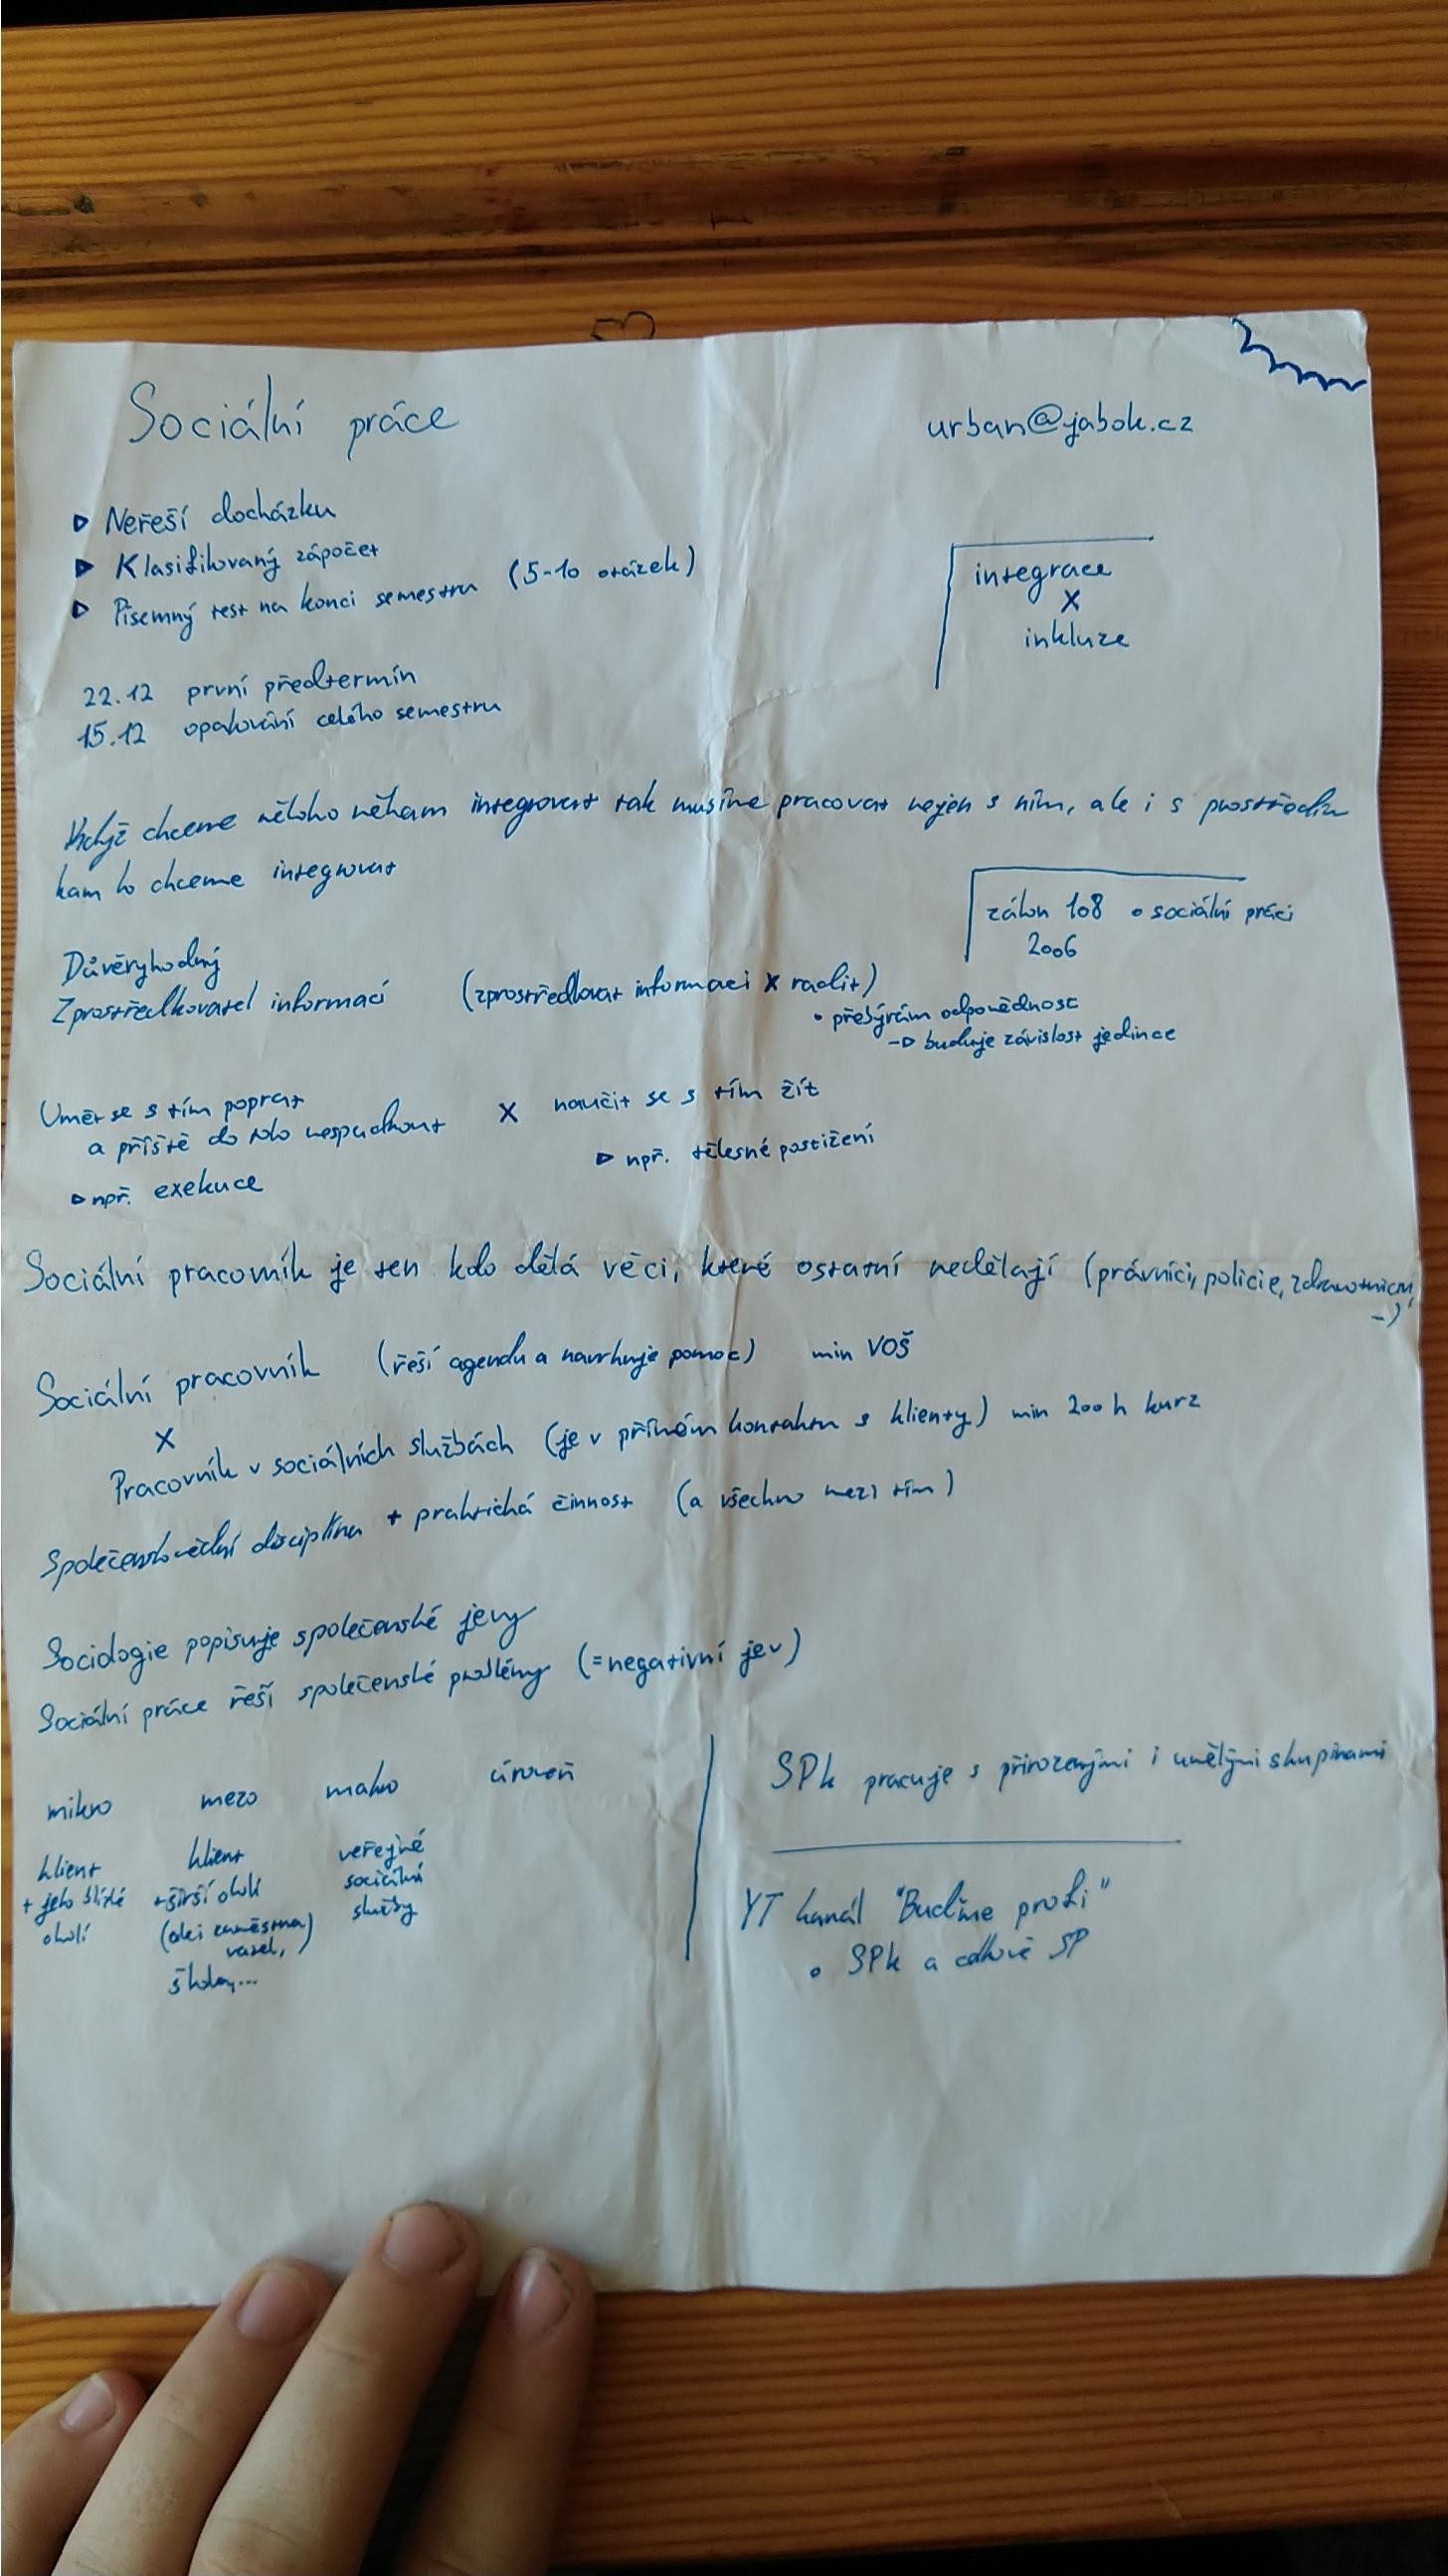 Sociální práce
urban@jabok.cz
▷ Neřeší docházku
▷ Klasifikovaný zápočet
▷ Písemný test na konci semestru (5-10 otázek)
integrace
X
inkluze
22.12 první předtermín
15.12 opakování celého semestru
Když chceme někoho někam integrovat tak musíme pracovat nejen s ním, ale i s prostředím
kam ho chceme integrovat
zákon 108 o sociální práci
2006
Důvěryhodný
Zprostředkovatel informací (zprostředkovat informaci x radit)
• přebírám odpovědnost
-▷ buduje závislost jedince
Umět se s tím poprat X naučit se s tím žít
a příště do toho nespadnout
▷ např. tělesné postižení
▷ např. exekuce
Sociální pracovník je ten kdo dělá věci, které ostatní nedělají (právníci, policie, zdravotnictví,
...)
Sociální pracovník (řeší agendu a navrhuje pomoc) min VOŠ
X
Pracovník v sociálních službách (je v přímém kontaktu s klienty) min 200 h kurz
Společenskovědní disciplína + praktická činnost (a všechno mezi tím)
Sociologie popisuje společenské jevy
Sociální práce řeší společenské problémy (=negativní jev)
mikro mezo makro úroveň
klient klient veřejné
+ jeho blízké + širší okolí sociální
okolí (obci zaměstna) služby
vatel,
školy...
SPk pracuje s přirozenými i umělými skupinami
YT kanál "Buďme profi"
• SPk a celkově SP